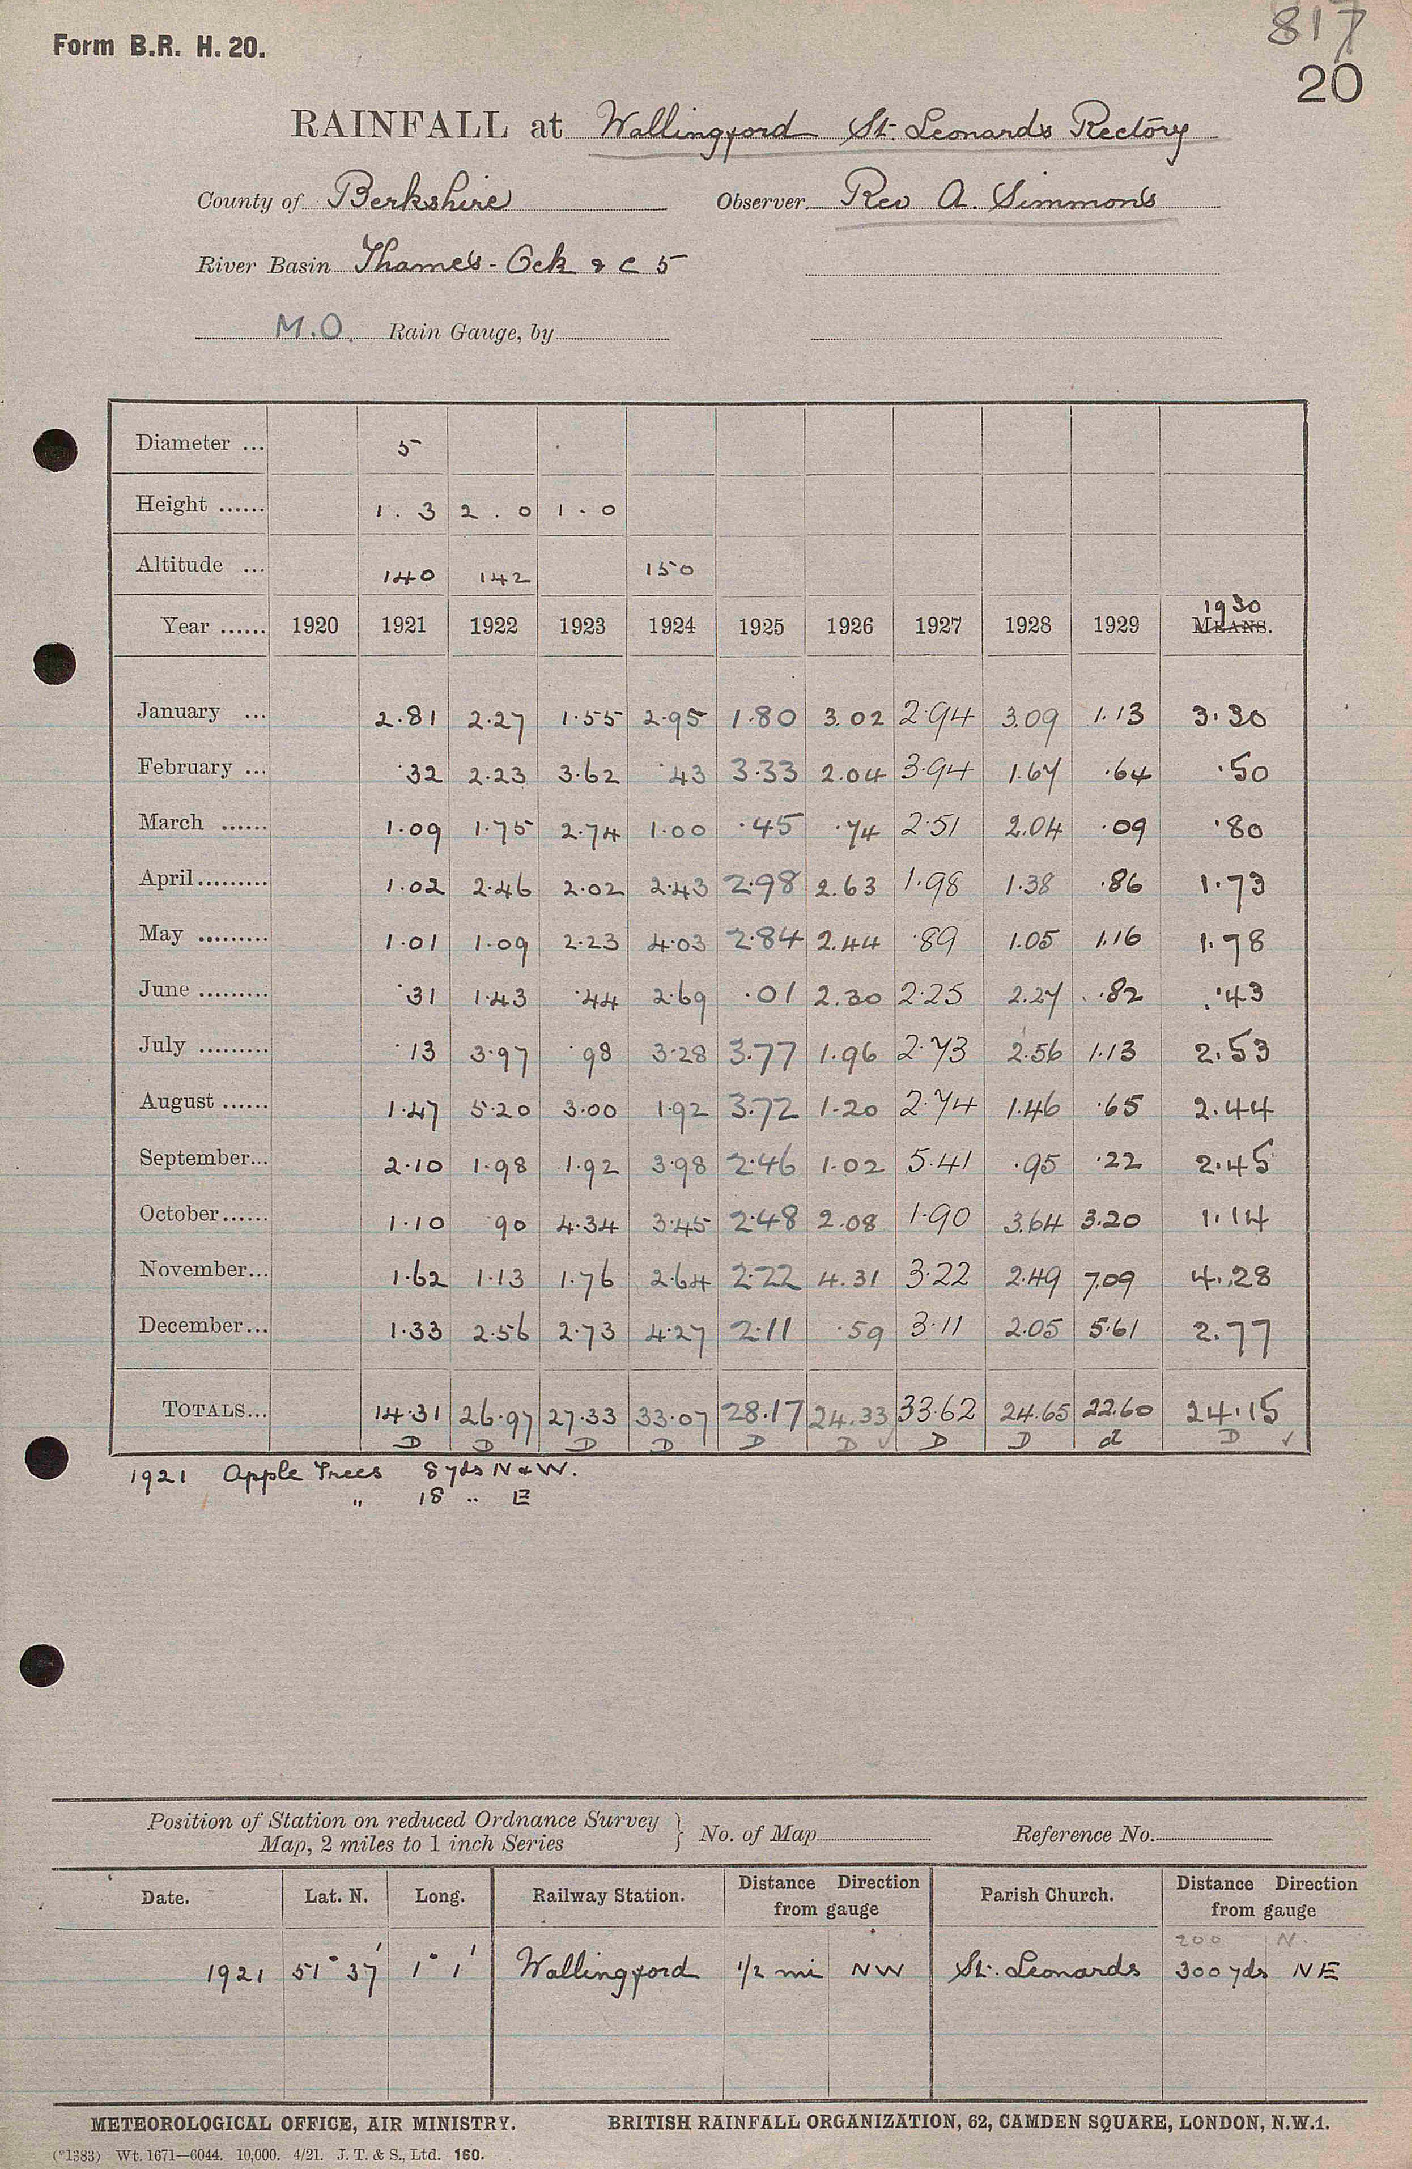 817
Form B.R. H. 20.
20
RAINFALL at Wallingford St. Leonards Rectory
County of Berkshire Observer Rev A. Simmons
River Basin Thames - Ock & C 5
M.O. Rain Gauge, by
Diameter ... 5
Height ...... 1 . 3 2 . 0 1 . 0
Altitude ... 140 142 150
1930
Year ...... 1920 1921 1922 1923 1924 1925 1926 1927 1928 1929 MEANS.
January ... 2.81 2.27 1.55 2.95 1.80 3.02 2.94 3.09 1.13 3.30
February ... .32 2.23 3.62 .43 3.33 2.04 3.94 1.67 .64 .50
March ...... 1.09 1.75 2.74 1.00 .45 .74 2.51 2.04 .09 .80
April......... 1.02 2.46 2.02 2.43 2.98 2.63 1.98 1.38 .86 1.73
May ......... 1.01 1.09 2.23 4.03 2.84 2.44 .89 1.05 1.16 1.78
June ......... .31 1.43 .44 2.69 .01 2.30 2.25 2.27 .82 .43
July ......... .13 3.97 .98 3.28 3.77 1.96 2.73 2.56 1.13 2.53
August ...... 1.47 5.20 3.00 1.92 3.72 1.20 2.74 1.46 .65 2.44
September... 2.10 1.98 1.92 3.98 2.46 1.02 5.41 .95 .22 2.45
October...... 1.10 .90 4.34 3.45 2.48 2.08 1.90 3.64 3.20 1.14
November... 1.62 1.13 1.76 2.64 2.22 4.31 3.22 2.49 7.09 4.28
December... 1.33 2.56 2.73 4.27 2.11 .59 3.11 2.05 5.61 2.77
TOTALS... 14.31 26.97 27.33 33.07 28.17 24.33 33.62 24.65 22.60 24.15
D D D D D D ✓ D D d D ✓
1921 Apple Trees 8 yds N & W.
" 18 .. E
Position of Station on reduced Ordnance Survey } No. of Map Reference No.
Map, 2 miles to 1 inch Series
Date. Lat. N. Long. Railway Station. Distance Direction from gauge Parish Church. Distance Direction from gauge
200 N.
1921 51° 37' 1° 1' Wallingford 1/2 mi NW St. Leonards 300 yds NE
METEOROLOGICAL OFFICE, AIR MINISTRY. BRITISH RAINFALL ORGANIZATION, 62, CAMDEN SQUARE, LONDON, N.W.1.
(*1383) Wt. 1671—6044. 10,000. 4/21. J. T. & S., Ltd. 160.